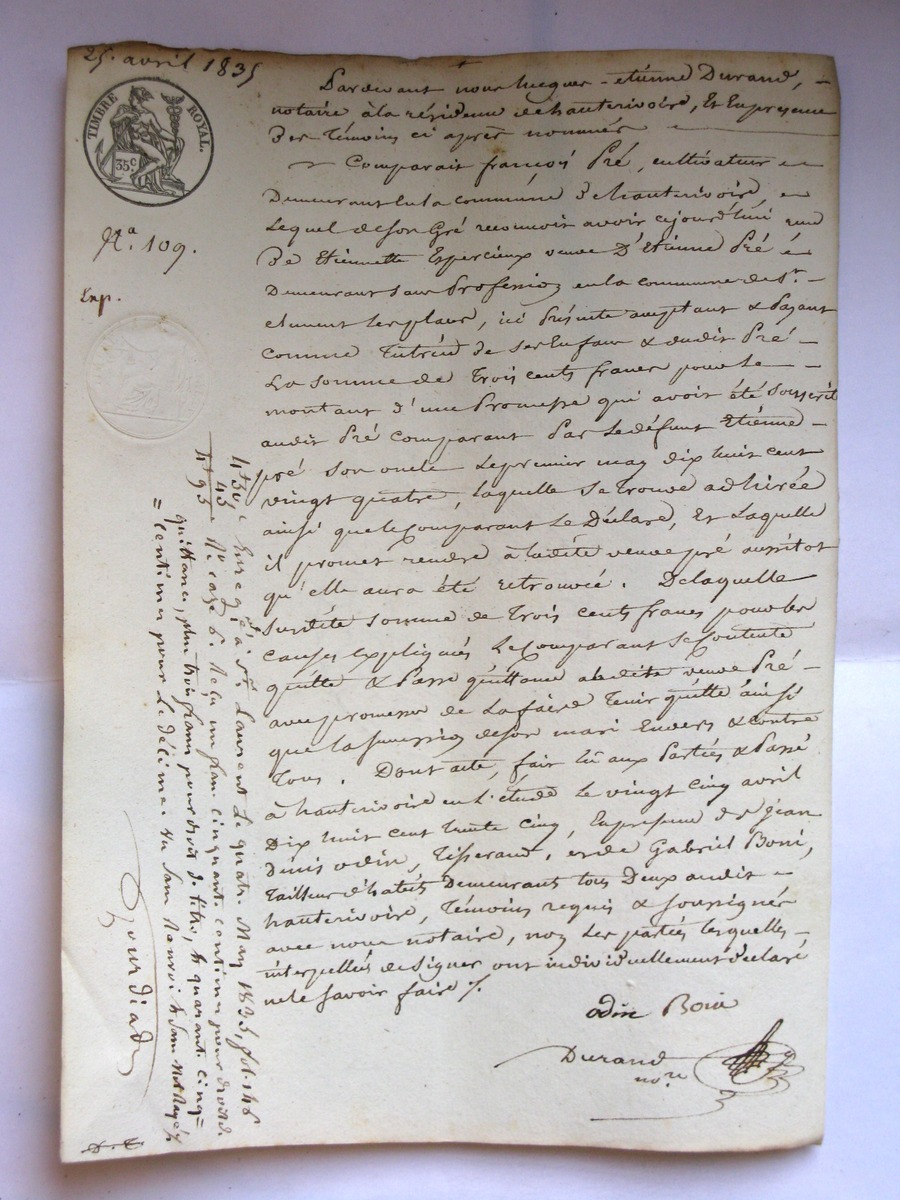 25. avril 1835
TIMBRE ROYAL.
35c.
Na. 109.
Exp.
Pardevant nous Jacques - etienne Durand, -
notaire à la résidence de hauterivoire, Et En présence
Des Témoins ci après nommés
Comparait françois Pré, cultivateur
Demeurant En la commune de hauterivoire,
Lequel de son Gré reconnoit avoir cejourd'hui
De Etiennette Espercieux veuve D'Etienne Pré
Demeurant sans Profession en la commune de St.
clement les places, ici Présente acceptant & Payant
comme Tutrice de ses Enfans & dudit Pré -
La somme de Trois cents francs pour le -
montant d'une Promesse qui avoit été souscrite
audit Pré comparant Par le défunt Etienne -
pré son oncle le premier may dix huit cent
vingt quatre, laquelle se trouve adhirée
ainsi que le Comparant le Déclare, Et Laquelle
il promet rendre à ladite veuve pré aussitot
qu'elle aura été retrouvée. De laquelle
susdite somme de Trois cents francs pour les
causes expliquées Le Comparant se Contente
quitte & Passe quittance à ladite veuve Pré -
avec promesse de La faire Tenir quitte ainsi
que la succession de son mari Envers & contre
Tous. Dont acte, fait lû aux Parties & Passé
à hauterivoire en L'étude le vingt cinq avril
Dix huit cent trente cinq, En présence de Sr jean
Denis odin, Tisserand, et de Gabriel Boni,
Tailleur d'habits Demeurant tous Deux audit -
hauterivoire, Témoins requis & soussignés
avec nous notaire, non Les parties lesquelles -
interpellées de signer ont individuellement déclaré
ne le savoir faire %.
odin Boni
Durand
nore
Enregé à St. Laurent Le quatre May 1835, fol. 146
Ro case 6. Reçu un franc cinquante centimes pour droit de
quittance, plus trois francs pour droit de titre, & quarante cinq =
= centimes pour Le décime.
Gourdiad